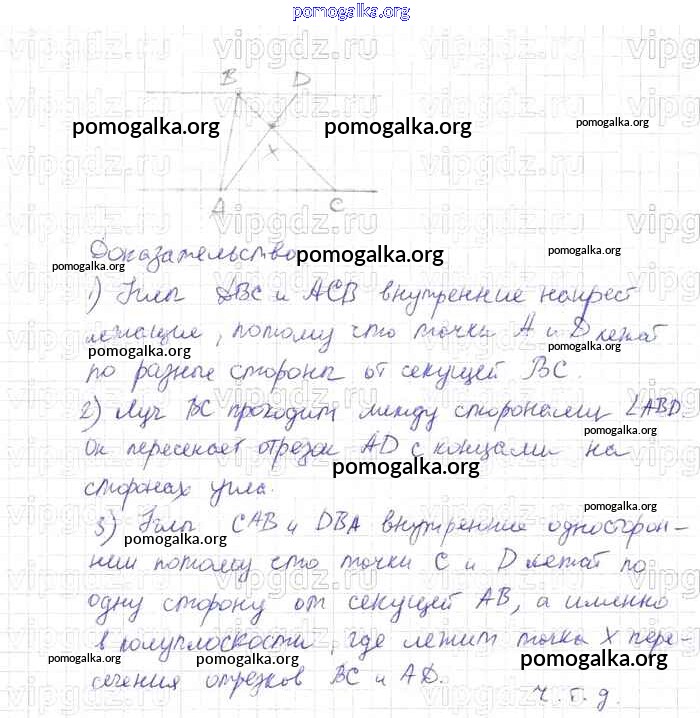 pomogalka.org
vipgdz.ru vipgdz.ru vipgdz.ru
B D
pomogalka.org pomogalka.org pomogalka.org
x
vipgdz.ru vipgdz.ru vipgdz.ru
A C
Доказательство
pomogalka.org pomogalka.org pomogalka.org
1) Углы DBC и ACB внутренние накрест
лежащие, потому что точки A и D лежат
pomogalka.org pomogalka.org
по разные стороны от секущей BC.
2) Луч BC проходит между сторонами ∠ABD
pomogalka.org
Он пересекает отрезок AD с концами на
pomogalka.org
сторонах угла.
pomogalka.org
3) Углы CAB и DBA внутренние односторон-
pomogalka.org
ние потому что точки C и D лежат по
pomogalka.org
одну сторону от секущей AB, а именно
в полуплоскости, где лежит точка X пере-
pomogalka.org pomogalka.org pomogalka.org
сечения отрезков BC и AD.
ч.т.д.